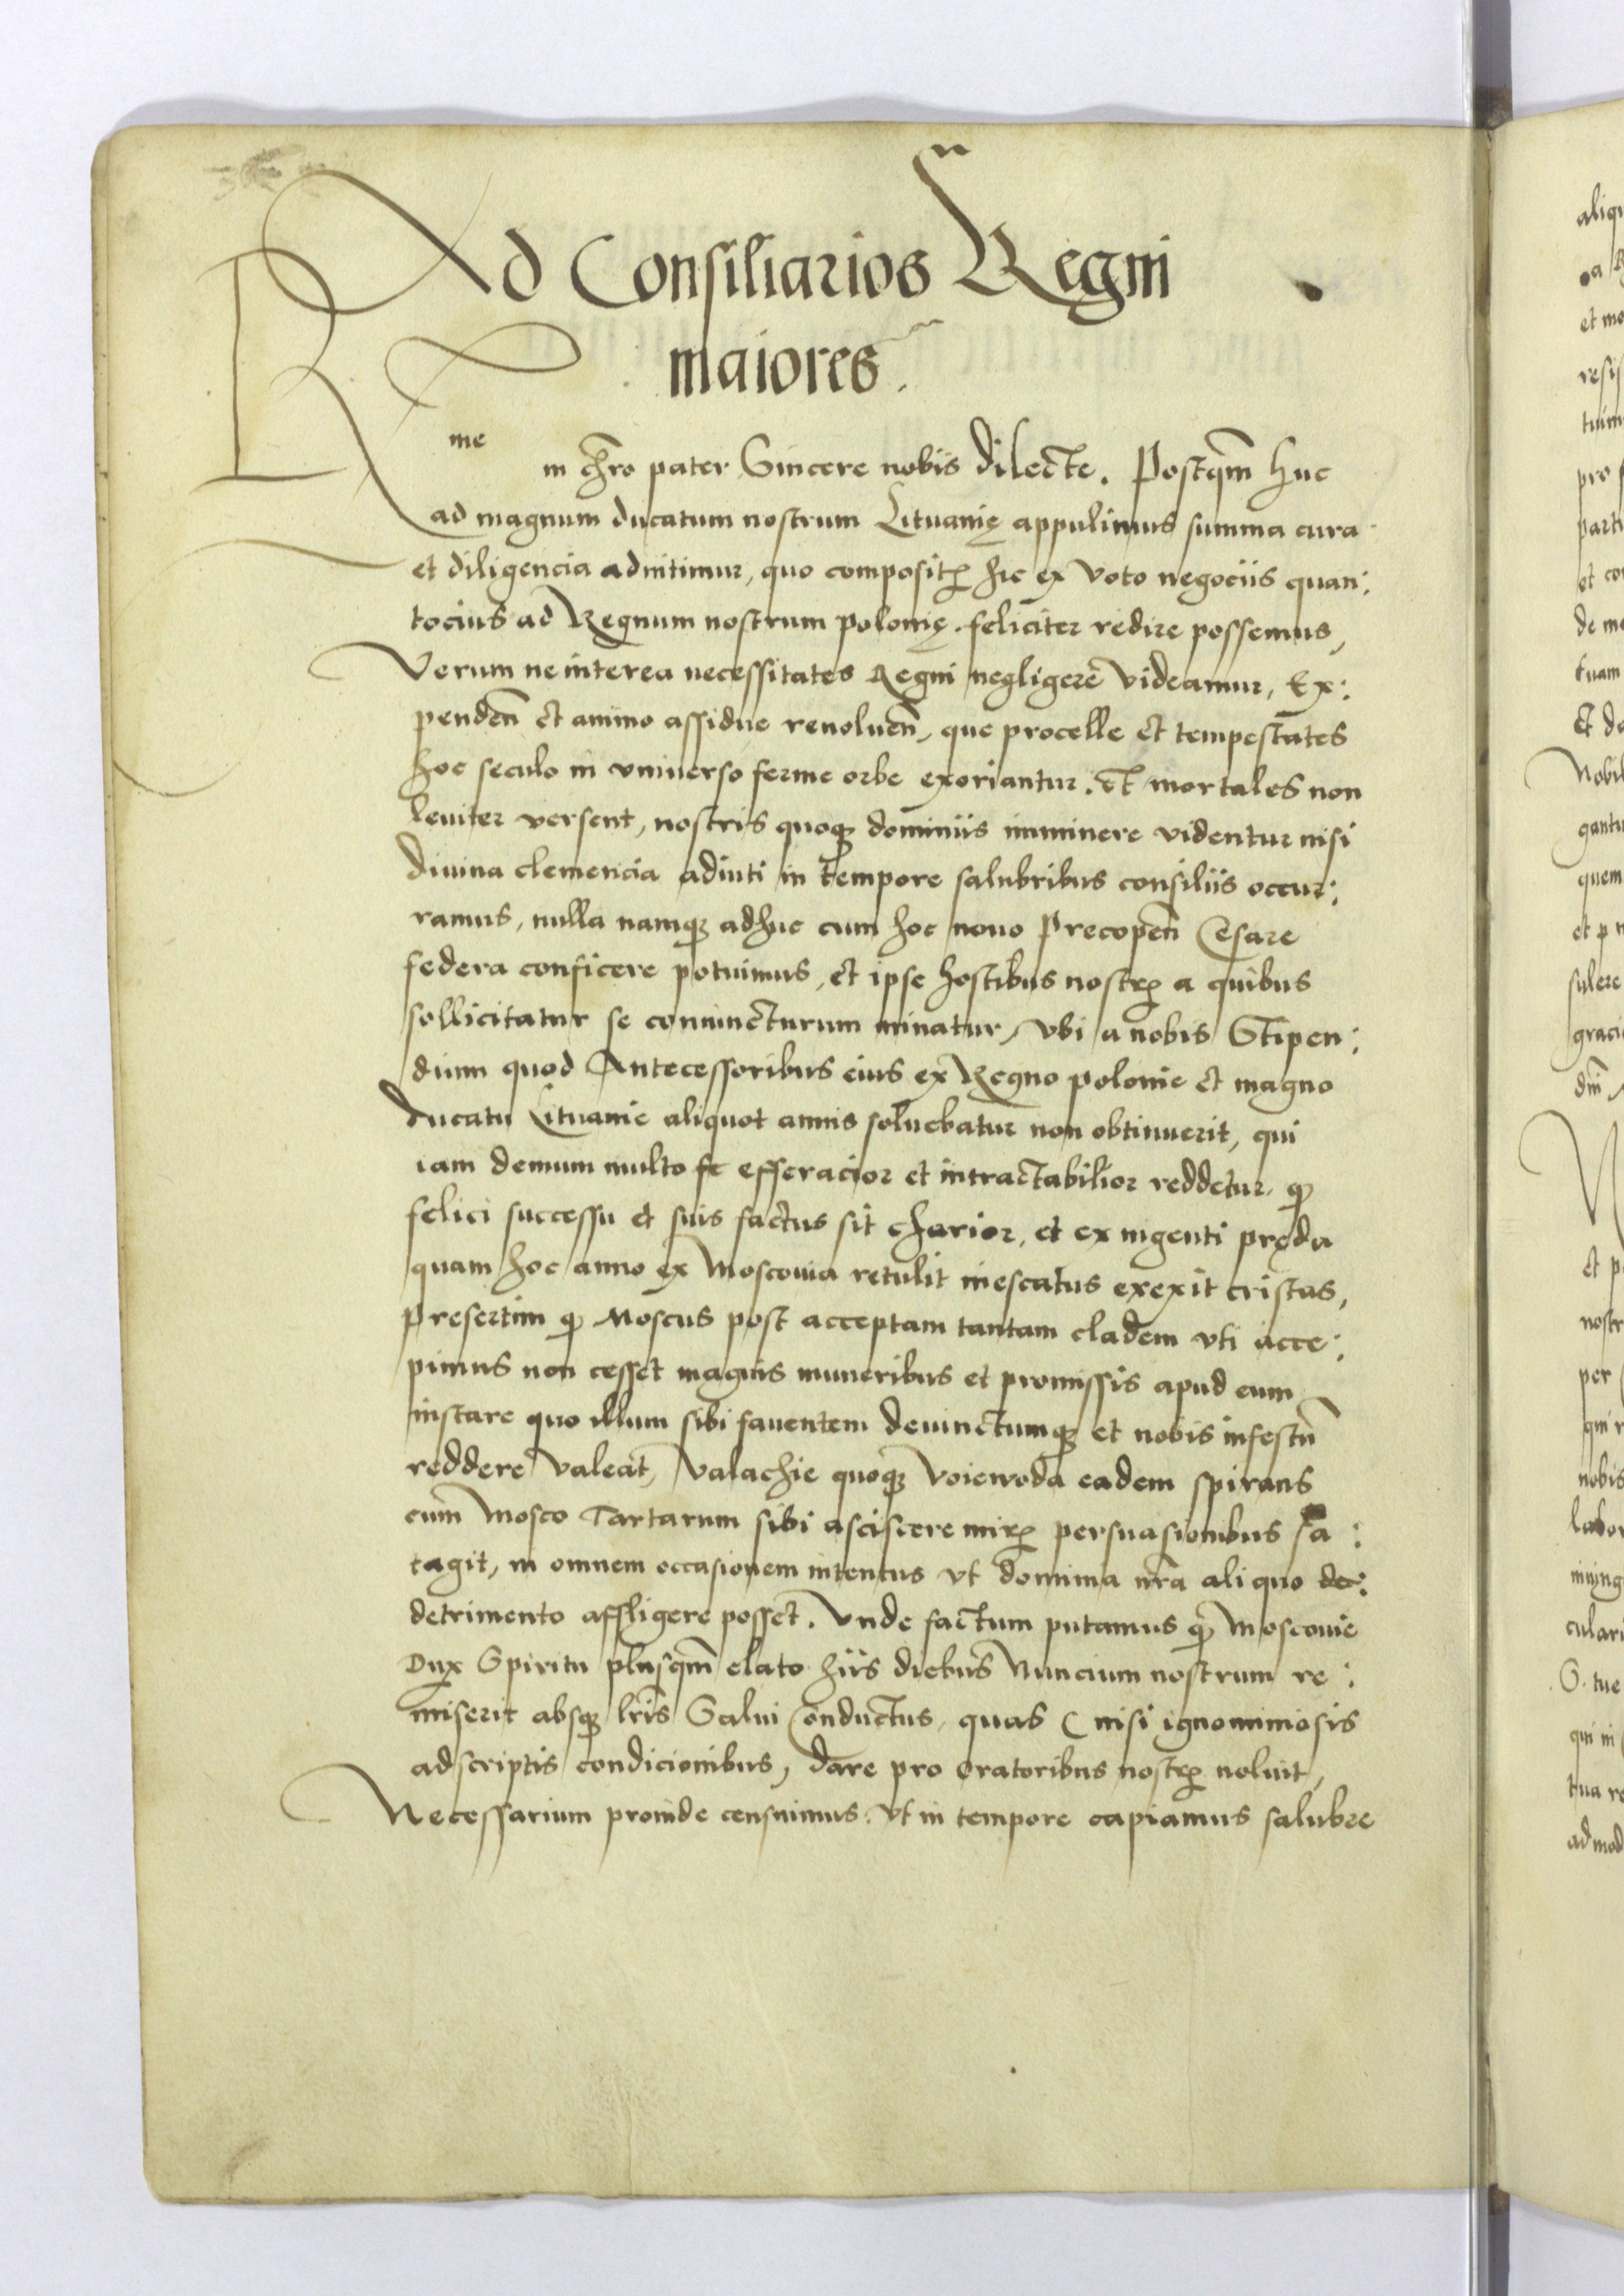 Ad Consiliarios Regni
maiores.
Rme in chro pater Sincere nobis dilecte. Postqm huc
ad magnum ducatum nostrum Lituanię appulimus summa cura
et diligencia adnitimur, quo composit hic ex voto negociis quan:
tocius ad Regnum nostrum polonię feliciter redire possemus,
Verum ne interea necessitates Regni negligere videamur, Ex:
penden et animo assidue reuoluen, que procelle et tempestates
hoc seculo in vniuerso ferme orbe exoriantur. et mortales non
leuiter versent, nostris quoqꝫ dominiis imminere videntur nisi
diuina clemencia adiuti in tempore salubribus consiliis occur:
ramus, nulla namqꝫ adhuc cum hoc nouo Precopen Cesare
federa conficere potuimus, et ipse hostibus nostrꝝ a quibus
sollicitatur se coniuncturum minatur, vbi a nobis Stipen:
dium quod Antecessoribus eius ex Regno polonie et magno
ducatu Lituanie aliquot annis soluebatur non obtinuerit, qui
iam demum multo se efferacior et intractabilior reddetur, qꝫ
felici successu et suis factus sit charior, et ex ingenti pręda
quam hoc anno ex Moscouia retulit inescatus erexit cristas,
Presertim qꝫ Moscus post acceptam tantam cladem vti acce:
pimus non cesset magnis muneribus et promissis apud eum
instare quo illum sibi fauentem deuinctumqꝫ et nobis infestū
reddere valeat, Valachie quoqꝫ voiewoda eadem spirans
cum Mosco Tartarum sibi asciscere mirꝝ persuasionibus sa:
tagit, in omnem occasionem intentus vt dominia nra aliquo de:
detrimento affligere posset. Vnde factum putamus qꝫ Moscouie
Dux Spiritu plusqm elato hiis diebus Nuncium nostrum re:
miserit absqꝫ lris Salui Conductus, quas (nisi ignominiosis
adscriptis condicionibus) dare pro Oratoribus nostrꝝ noluit,
Necessarium proinde censuimus. vt in tempore capiamus salubre